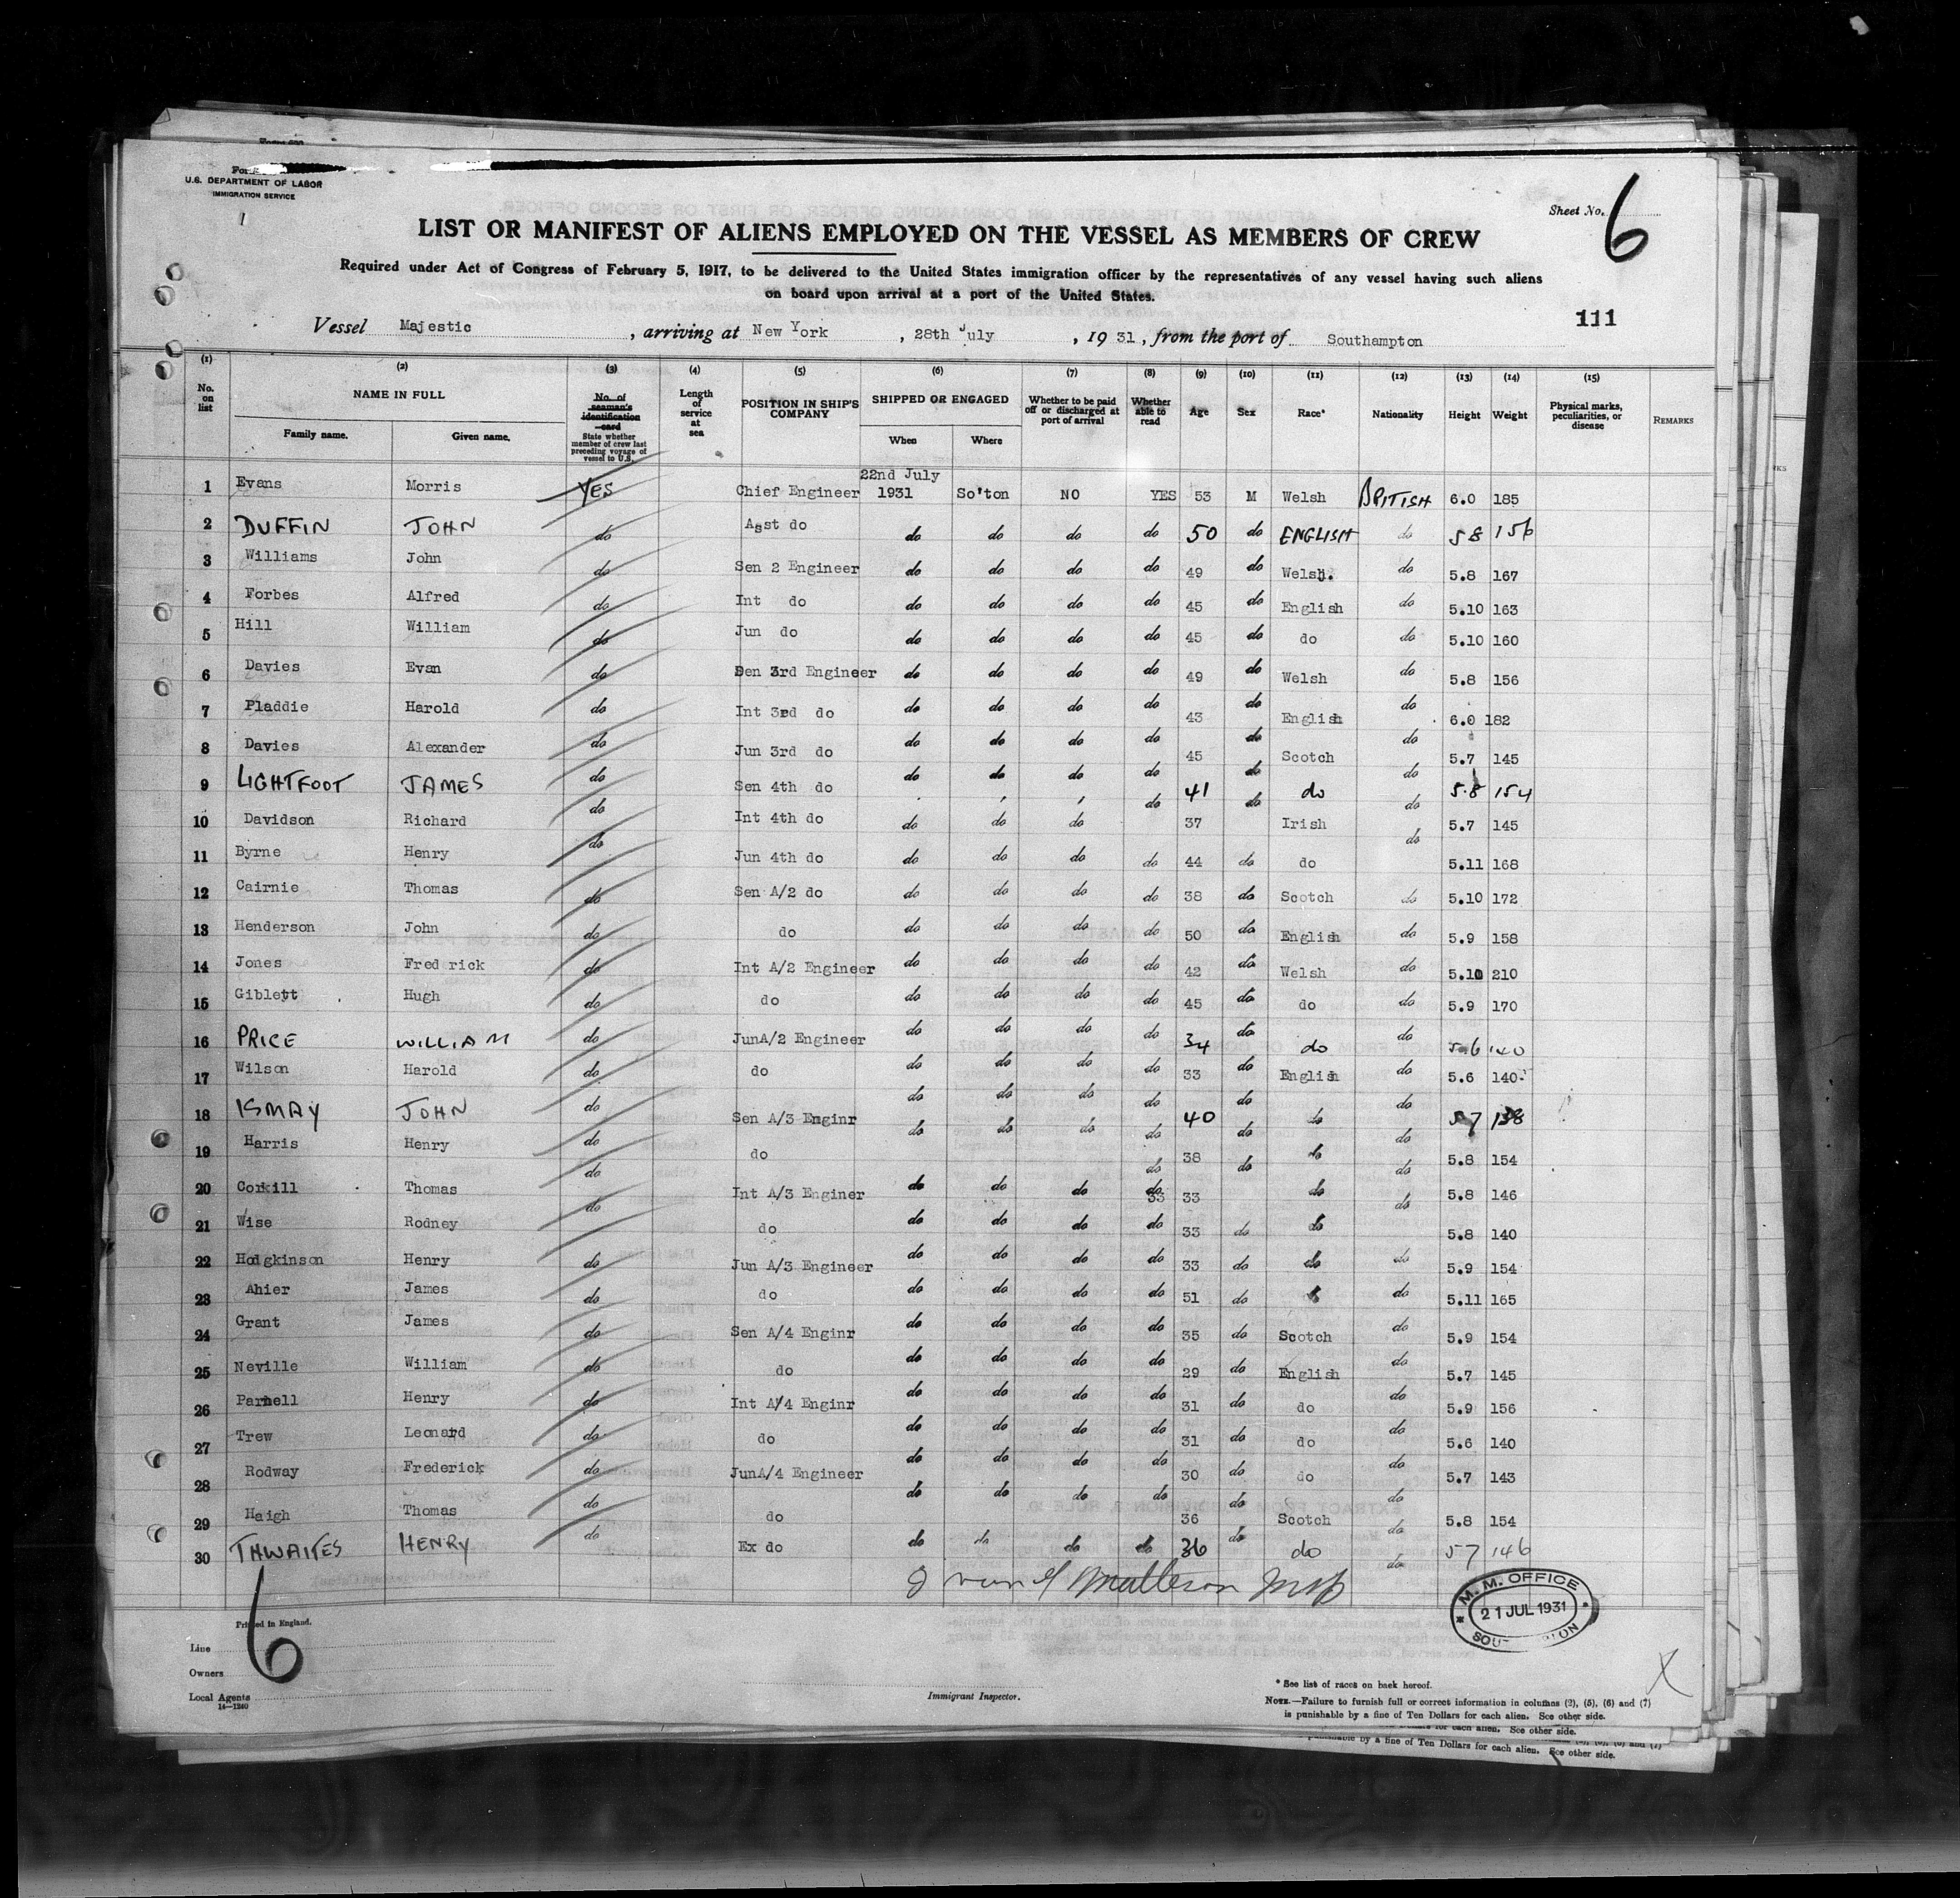 U.S. DEPARTMENT OF LABOR
IMMIGRATION SERVICE
Sheet No. 6
LIST OR MANIFEST OF ALIENS EMPLOYED ON THE VESSEL AS MEMBERS OF CREW
Required under Act of Congress of February 5, 1917, to be delivered to the United States immigration officer by the representatives of any vessel having such aliens
on board upon arrival at a port of the United States.
111
Vessel Majestic, arriving at New York, 28th July, 1931, from the port of Southampton
(1) (2) (3) (4) (5) (6) (7) (8) (9) (10) (11) (12) (13) (14) (15)
No. on list NAME IN FULL Family name. Given name. No. of seaman's identification card State whether member of crew last preceding voyage of vessel to U.S. Length of service at sea POSITION IN SHIP'S COMPANY SHIPPED OR ENGAGED When Where Whether to be paid off or discharged at port of arrival Whether able to read Age Sex Race* Nationality Height Weight Physical marks, peculiarities, or disease REMARKS
1 Evans Morris YES Chief Engineer 22nd July 1931 So'ton NO YES 53 M Welsh BRITISH 6.0 185
2 DUFFIN JOHN do Asst do do do do do 50 do ENGLISH do 5 8 156
3 Williams John do Sen 2 Engineer do do do do 49 do Welsh. do 5.8 167
4 Forbes Alfred do Int do do do do do 45 do English do 5.10 163
5 Hill William do Jun do do do do do 45 do do do 5.10 160
6 Davies Evan do Sen 3rd Engineer do do do do 49 do Welsh do 5.8 156
7 Pladdie Harold do Int 3rd do do do do do 43 do English do 6.0 182
8 Davies Alexander do Jun 3rd do do do do do 45 do Scotch do 5.7 145
9 LIGHTFOOT JAMES do Sen 4th do do do do do 41 do do do 5.8 154
10 Davidson Richard do Int 4th do do do do do 37 do Irish do 5.7 145
11 Byrne Henry do Jun 4th do do do do do 44 do do do 5.11 168
12 Cairnie Thomas do Sen A/2 do do do do do 38 do Scotch do 5.10 172
13 Henderson John do do do do do do 50 do English do 5.9 158
14 Jones Fred rick do Int A/2 Engineer do do do do 42 do Welsh do 5.10 210
15 Giblett Hugh do do do do do do 45 do do do 5.9 170
16 PRICE WILLIAM do JunA/2 Engineer do do do do 34 do do do 5.6 140
17 Wilson Harold do do do do do do 33 do English do 5.6 140
18 ISMAY JOHN do Sen A/3 Enginr do do do do 40 do do do 5 7 138
19 Harris Henry do do do do do do 38 do do do 5.8 154
20 Corkill Thomas do Int A/3 Enginer do do do do 33 do do do 5.8 146
21 Wise Rodney do do do do do do 33 do do do 5.8 140
22 Hodgkinson Henry do Jun A/3 Engineer do do do do 33 do do do 5.9 154
23 Ahier James do do do do do do 51 do do do 5.11 165
24 Grant James do Sen A/4 Enginr do do do do 35 do Scotch do 5.9 154
25 Neville William do do do do do do 29 do English do 5.7 145
26 Parnell Henry do Int A/4 Enginr do do do do 31 do do do 5.9 156
27 Trew Leonard do do do do do do 31 do do do 5.6 140
28 Rodway Frederick do JunA/4 Engineer do do do do 30 do do do 5.7 143
29 Haigh Thomas do do do do do do 36 do Scotch do 5.8 154
30 THWAITES HENRY do Ex do do do do do 36 do do do 5 7 146
M. M. OFFICE
21 JUL 1931
6
Printed in England.
Line
Owners
Local Agents
14-1240
Immigrant Inspector.
X
* See list of races on back hereof.
NOTE.—Failure to furnish full or correct information in columns (2), (5), (6) and (7)
is punishable by a fine of Ten Dollars for each alien. See other side.
for each alien. See other side.
punishable by a fine of Ten Dollars for each alien. See other side.